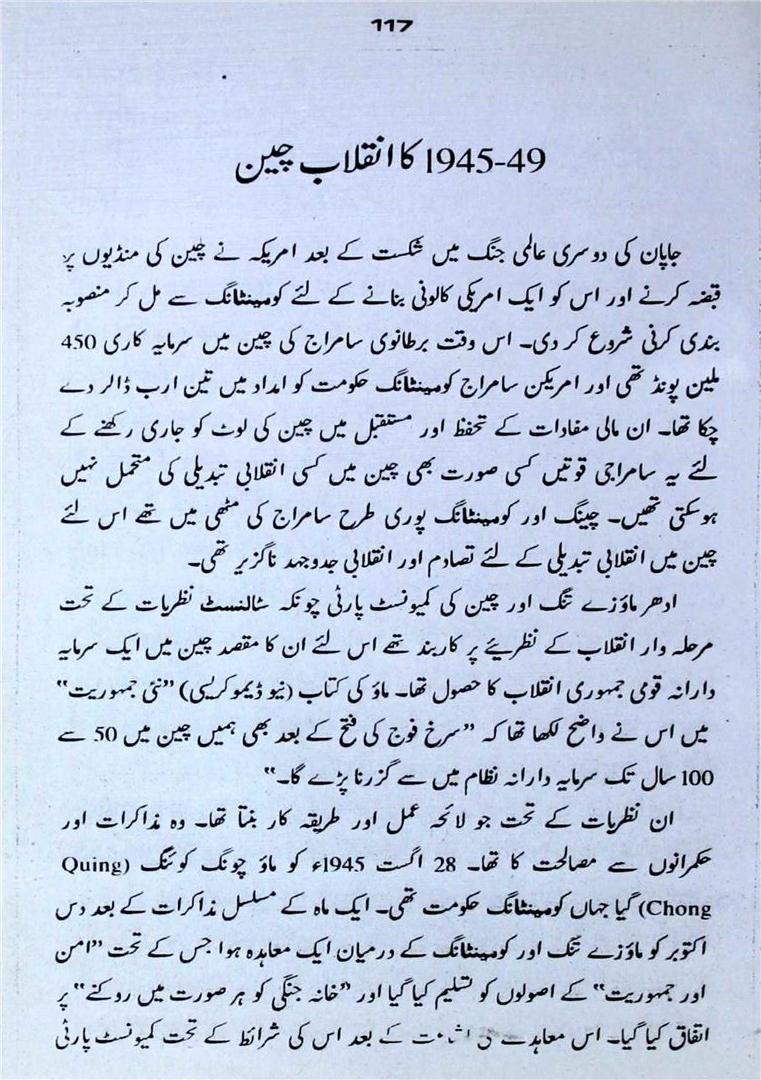 117
1945-49 کا انقلاب چین
جاپان کی دوسری عالمی جنگ میں شکست کے بعد امریکہ نے چین کی منڈیوں پر
قبضہ کرنے اور اس کو ایک امریکی کالونی بنانے کے لئے کومینٹانگ سے مل کر منصوبہ
بندی کرنی شروع کر دی۔ اس وقت برطانوی سامراج کی چین میں سرمایہ کاری 450
ملین پونڈ تھی اور امریکن سامراج کومینٹانگ حکومت کو امداد میں تین ارب ڈالر دے
چکا تھا۔ ان مالی مفادات کے تحفظ اور مستقبل میں چین کی لوٹ کو جاری رکھنے کے
لئے یہ سامراجی قوتیں کسی صورت بھی چین میں کسی انقلابی تبدیلی کی متحمل نہیں
ہوسکتی تھیں۔ چینگ اور کومینٹانگ پوری طرح سامراج کی مٹھی میں تھے اس لئے
چین میں انقلابی تبدیلی کے لئے تصادم اور انقلابی جدوجہد ناگزیر تھی۔
ادھر ماؤزے تنگ اور چین کی کمیونسٹ پارٹی چونکہ سٹالنسٹ نظریات کے تحت
مرحلہ وار انقلاب کے نظریئے پر کاربند تھے اس لئے ان کا مقصد چین میں ایک سرمایہ
دارانہ قومی جمہوری انقلاب کا حصول تھا۔ ماؤ کی کتاب (نیو ڈیموکریسی) ”نئی جمہوریت“
میں اس نے واضح لکھا تھا کہ ”سرخ فوج کی فتح کے بعد بھی ہمیں چین میں 50 سے
100 سال تک سرمایہ دارانہ نظام میں سے گزرنا پڑے گا۔“
ان نظریات کے تحت جو لائحہ عمل اور طریقہ کار بنتا تھا۔ وہ مذاکرات اور
حکمرانوں سے مصالحت کا تھا۔ 28 اگست 1945ء کو ماؤ چونگ کوئنگ (Quing
Chong) گیا جہاں کومینٹانگ حکومت تھی۔ ایک ماہ کے مسلسل مذاکرات کے بعد دس
اکتوبر کو ماؤزے تنگ اور کومینٹانگ کے درمیان ایک معاہدہ ہوا جس کے تحت ”امن
اور جمہوریت“ کے اصولوں کو تسلیم کیا گیا اور ”خانہ جنگی کو ہر صورت میں روکنے“ پر
اتفاق کیا گیا۔ اس معاہدے کی اشاعت کے بعد اس کی شرائط کے تحت کمیونسٹ پارٹی